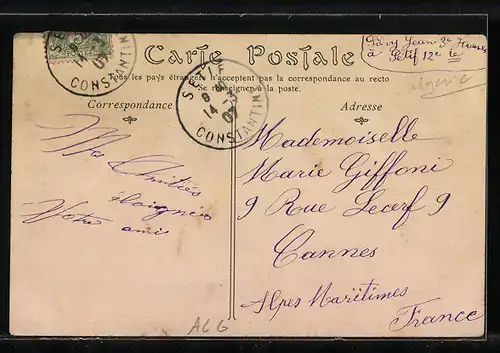 Carte Postale
Tous les pays étrangers n'acceptent pas la correspondance au recto
Se renseigner à la poste.
Jean 3e
à Sétif 12e le
algérie
Correspondance
Adresse
SETIF
14 -3
CONSTANTINE
SETIF
14 -3
CONSTANTINE
Mes Amitiés
éloignées
Votre ami
Mademoiselle
Marie Giffoni
9 Rue Lecerf 9
Cannes
Alpes Maritimes
France
A6G